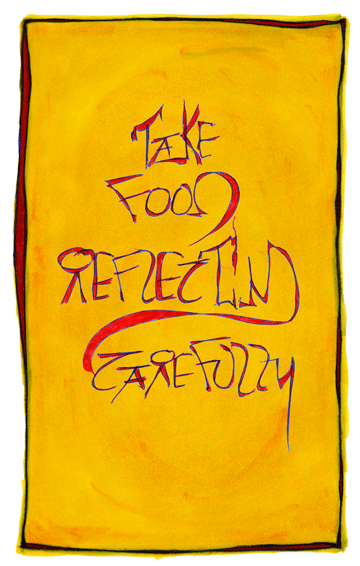 TAKE
FOOD
REFLECTING
CAREFULLY